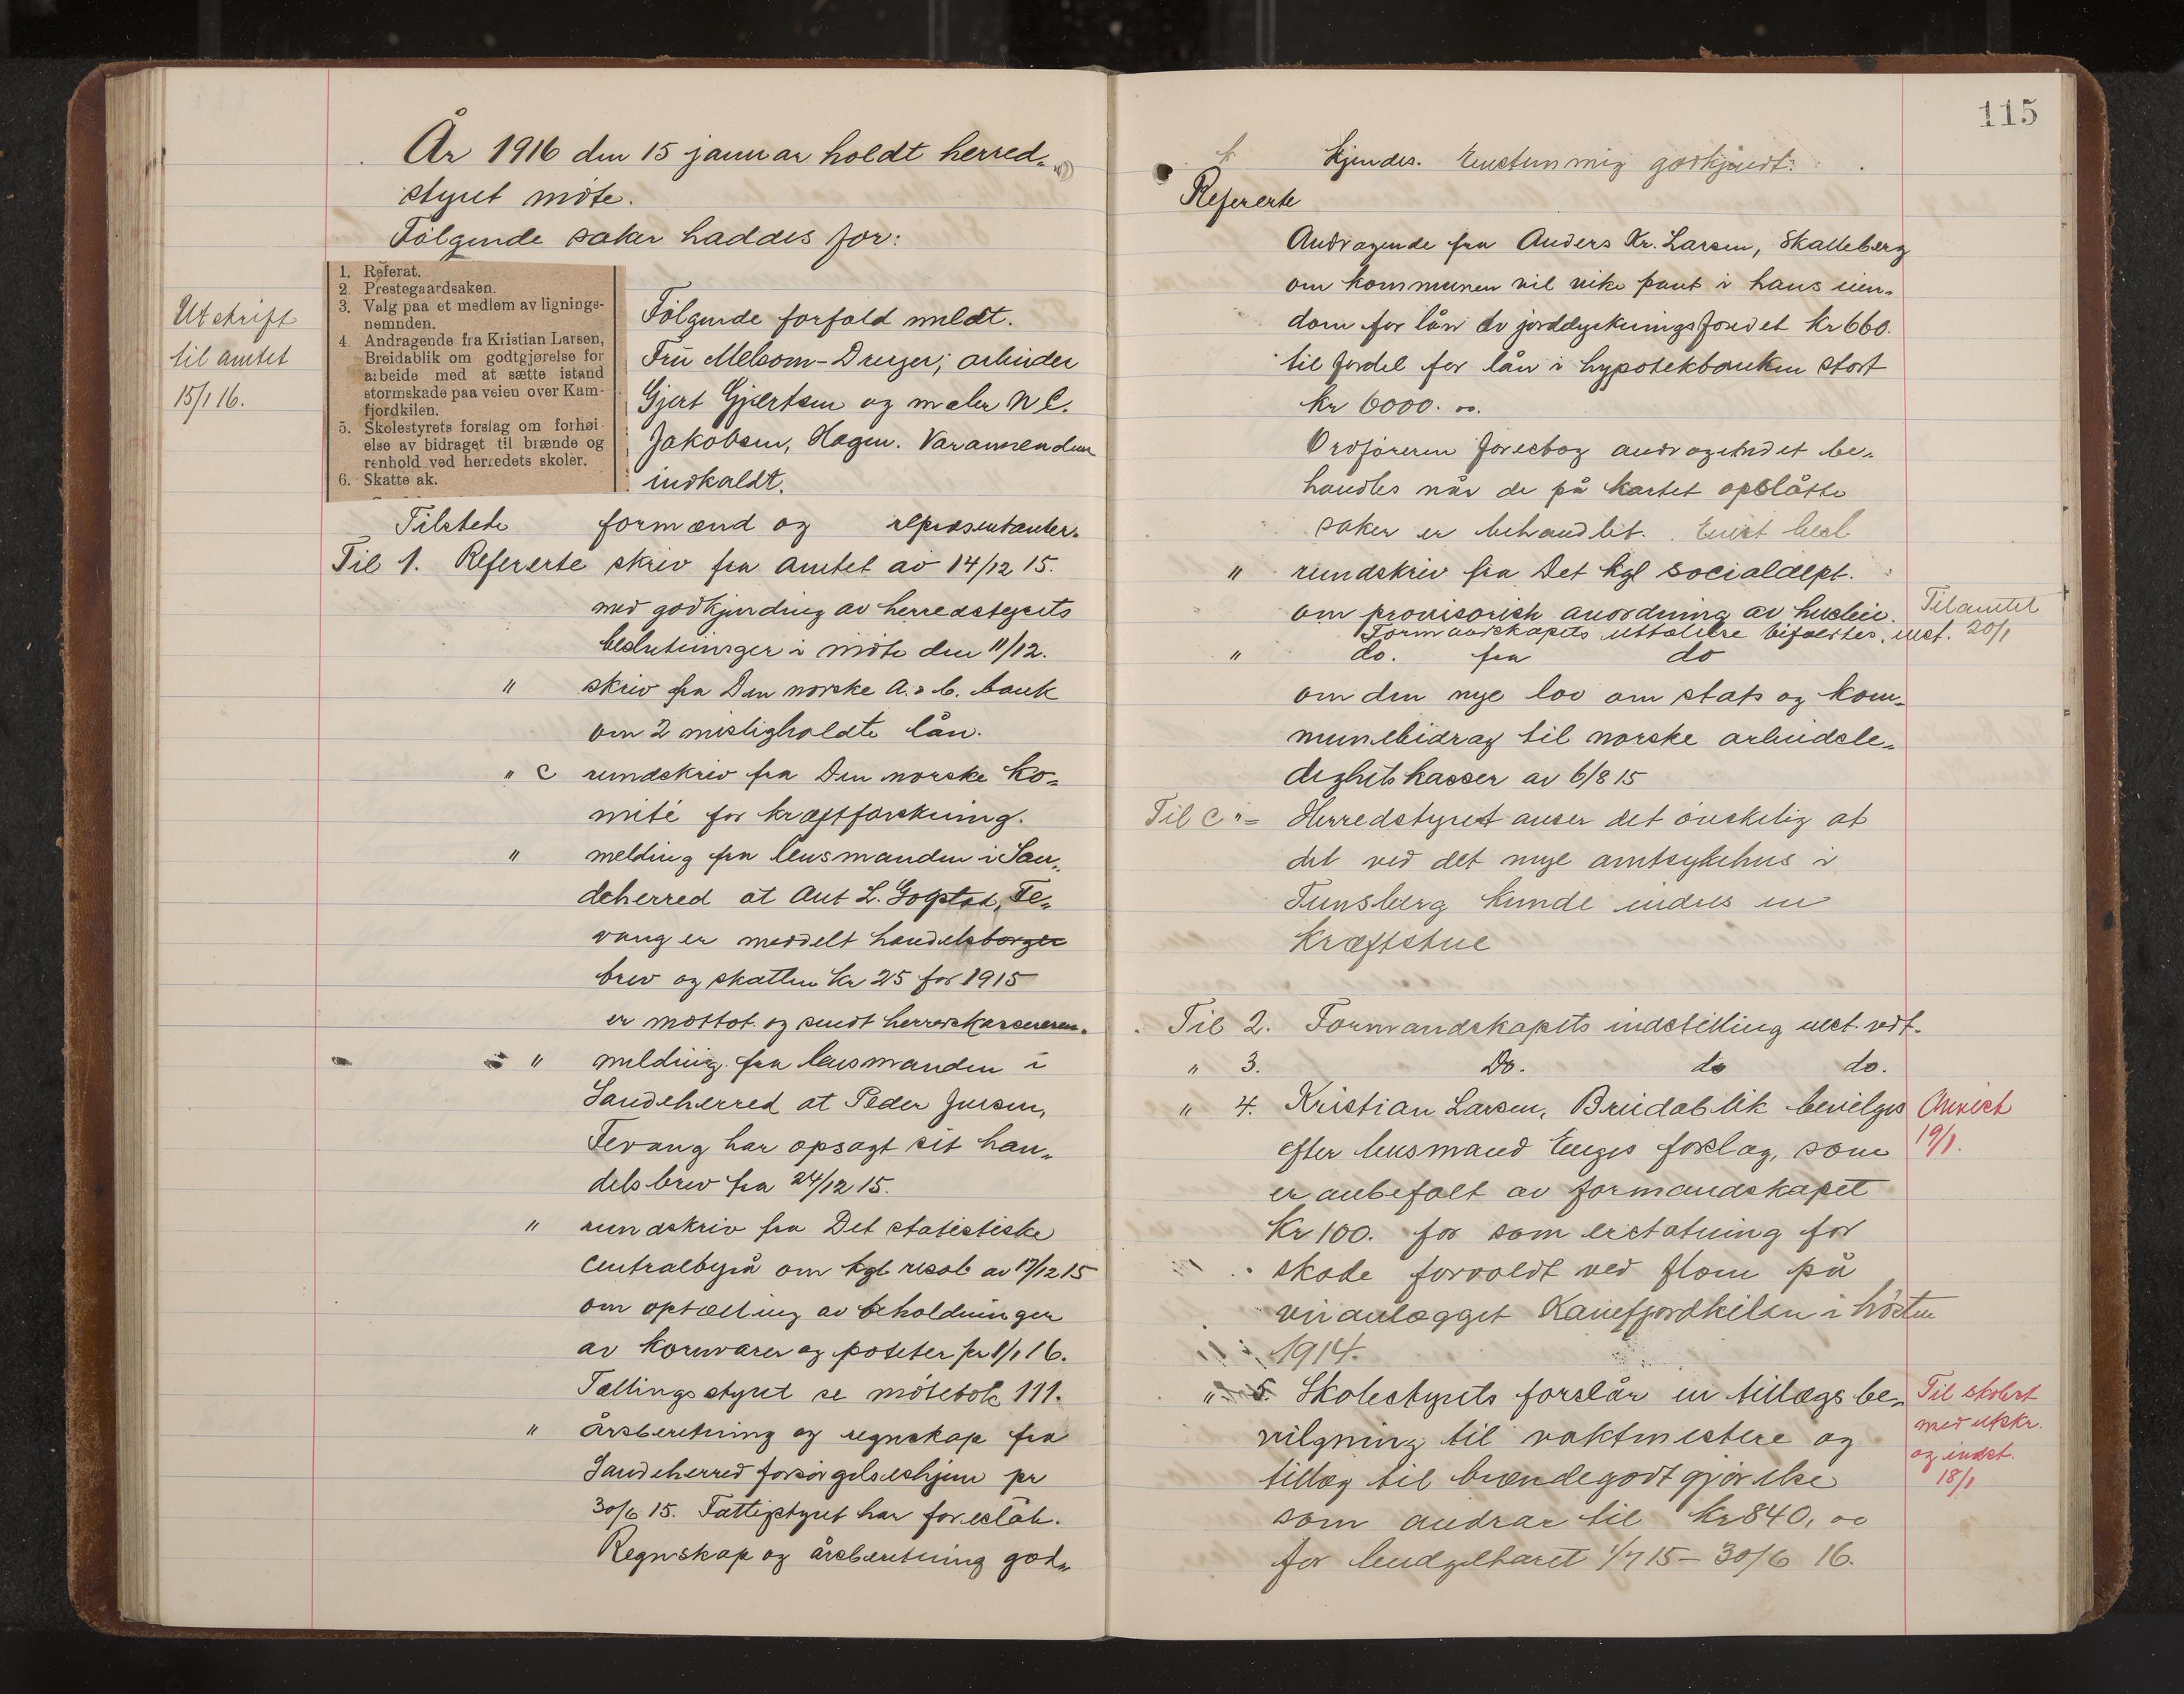 År 1916 den 15 januar holdt herred-
styret möte.
Fölgende saker haddes for:
1. Referat.
2. Prestegaardsaken.
3. Valg paa et medlem av lignings-
nemnden.
4. Andragende fra Kristian Larsen,
Breidablik om godtgjørelse for
arbeide med at sætte istand
stormskade paa veien over Kam-
fjordkilen.
5. Skolestyrets forslag om forhøi
else av bidraget til brænde og
renhold ved herredets skoler.
6. Skatte ak.
Utskrift
til amtet
15/1 16.
Fölgende forfald meldt.
Fru Melsom-Dreyer; arbeider
Gjert Gjertsen og maler N C.
Jakobsen, Hagen. Varamenden
indkaldt.
Tilstede formænd og repræsentanter.
Til 1. Refererte skriv fra amtet av 14/12 15.
med godkjending av herredstyrets
beslutninger i möte den 11/12.
" skriv fra Den norske A. & b. bank
om 2 misligholdte lån.
" c rundskriv fra Den norske ko-
mité for kræftforskning.
" melding fra lensmanden i San-
deherred at Ant L. Te-
vang er meddelt handelsborger
brev og skatten kr 25 for 1915
er mottat og sendt herredskassereren.
" melding fra lensmanden i
Sandeherred at Peder Jensen,
Tevang har opsagt sit han-
delsbrev fra 24/12 15.
" rundskriv fra Det statistiske
Centralbyrå om kgl resol av 17/12 15
om optælling av beholdninger
av kornvarer og poteter pr 1/1 16.
Tællingsstyret se mötebok 111.
" årsberetning og regnskap fra
Sandeherred forsörgelseshjem pr
30/6 15. Fattigstyret har foreslåt.
Regnskap og årsberetning god-
115
kjendes. Enstemmig godkjendt.
Refererte
Andragende fra Anders Kr. Larsen, Skalleberg
om kommunen vil vike pant i hans eien-
dom for lån av jorddyrkningsfondet kr 660.
til fordel for lån i hypotekbanken stort
kr 6000. oo.
Ordföreren foreslog andragendet be-
handles når de på kartet opslåtte
saker er behandlet. Enst besl
" rundskriv fra Det kgl socialdept.
om provisorisk anordning av husleie.
Formandskapets uttalelse bifaldtes, enst.
Til amtet
20/1
" do. fra do
om den nye lov om stats og kom-
munebidrag til norske arbeidsle-
dighetskasser av 6/8 15
Til C "= Herredstyret anser det önskelig at
det ved det nye amtsykehus i
Tunsberg kunde indres en
kræftstue
Til 2. Formandskapets indstilling enst. vedt.
" 3. Do. do do.
" 4. Kristian Larsen, Breidablik bevilges
efter lensmand Enges forslag, som
er anbefalt av formandskapet
Kr 100. for som erstatning for
skade forvoldt ved flom på
veianlægget Kamfjordkilen i hösten
1914.
Anvist
19/1.
" 5. Skolestyrets forslår en tillægsbe-
vilgning til vaktmestere og
tillæg til brændegodtgjörelse
som andrar til kr 840, oo
for budgetåret 1/7 15 - 30/6 16.
Til skolest
med utskr.
og indst.
18/1